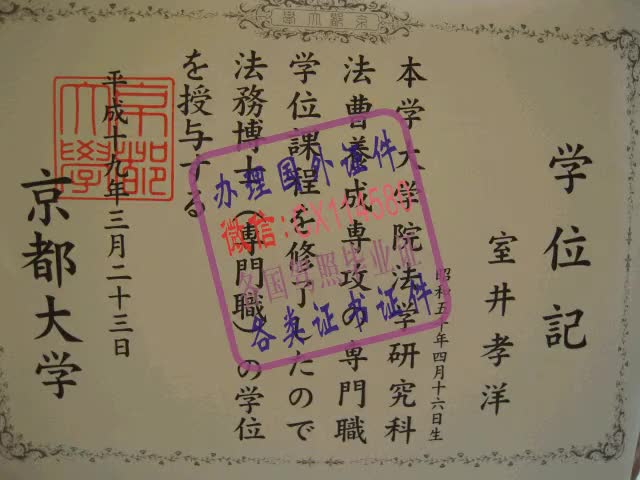 學大都京
学位記
室井孝洋
昭和五十年四月十六日生
本学大学院法学研究科
法曹養成専攻の専門職
学位課程を修了したので
法務博士(専門職)の学位
を授与する
平成十九年三月二十三日
京都大学
京都大學
办理国外证件
微信:CX114580
各国驾照毕业证
各类证书证件